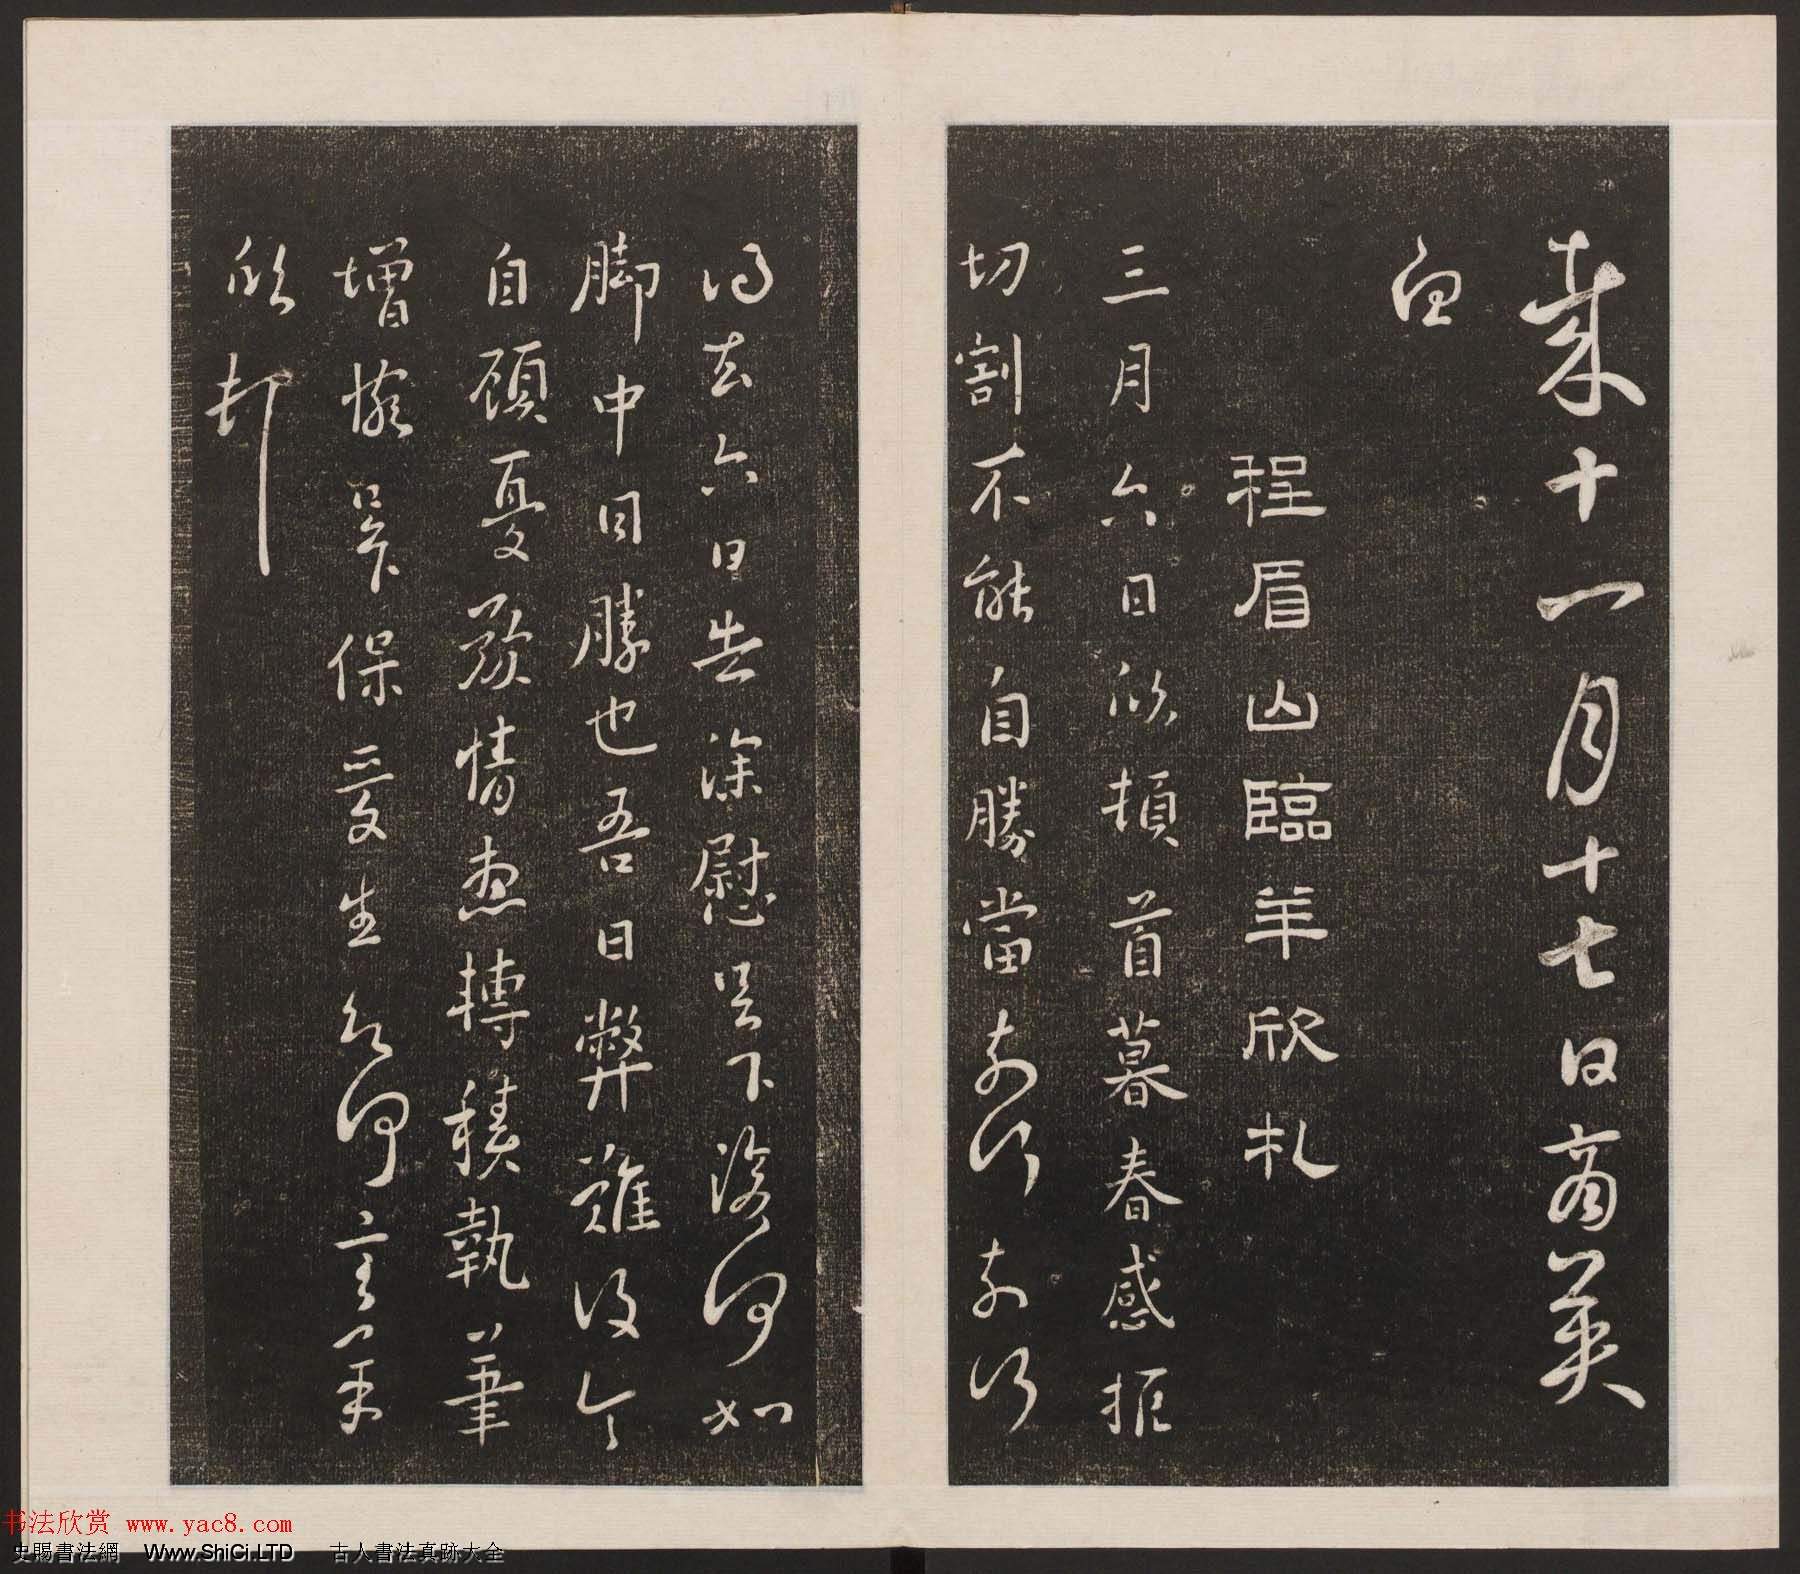 來十一月十七日商英
白
程眉山臨羊欣札
三月六日欣頓首暮春感摧
切割不能自勝當奈何奈何
得去六日告深慰吳下後何如
腳中日勝也吾日弊難復令
自顧憂歎情想轉積執筆
增
保愛生
欣
书法欣赏 www.yac8.com
史賜書法網 Www.ShiCi.LTD 古人書法真跡大全